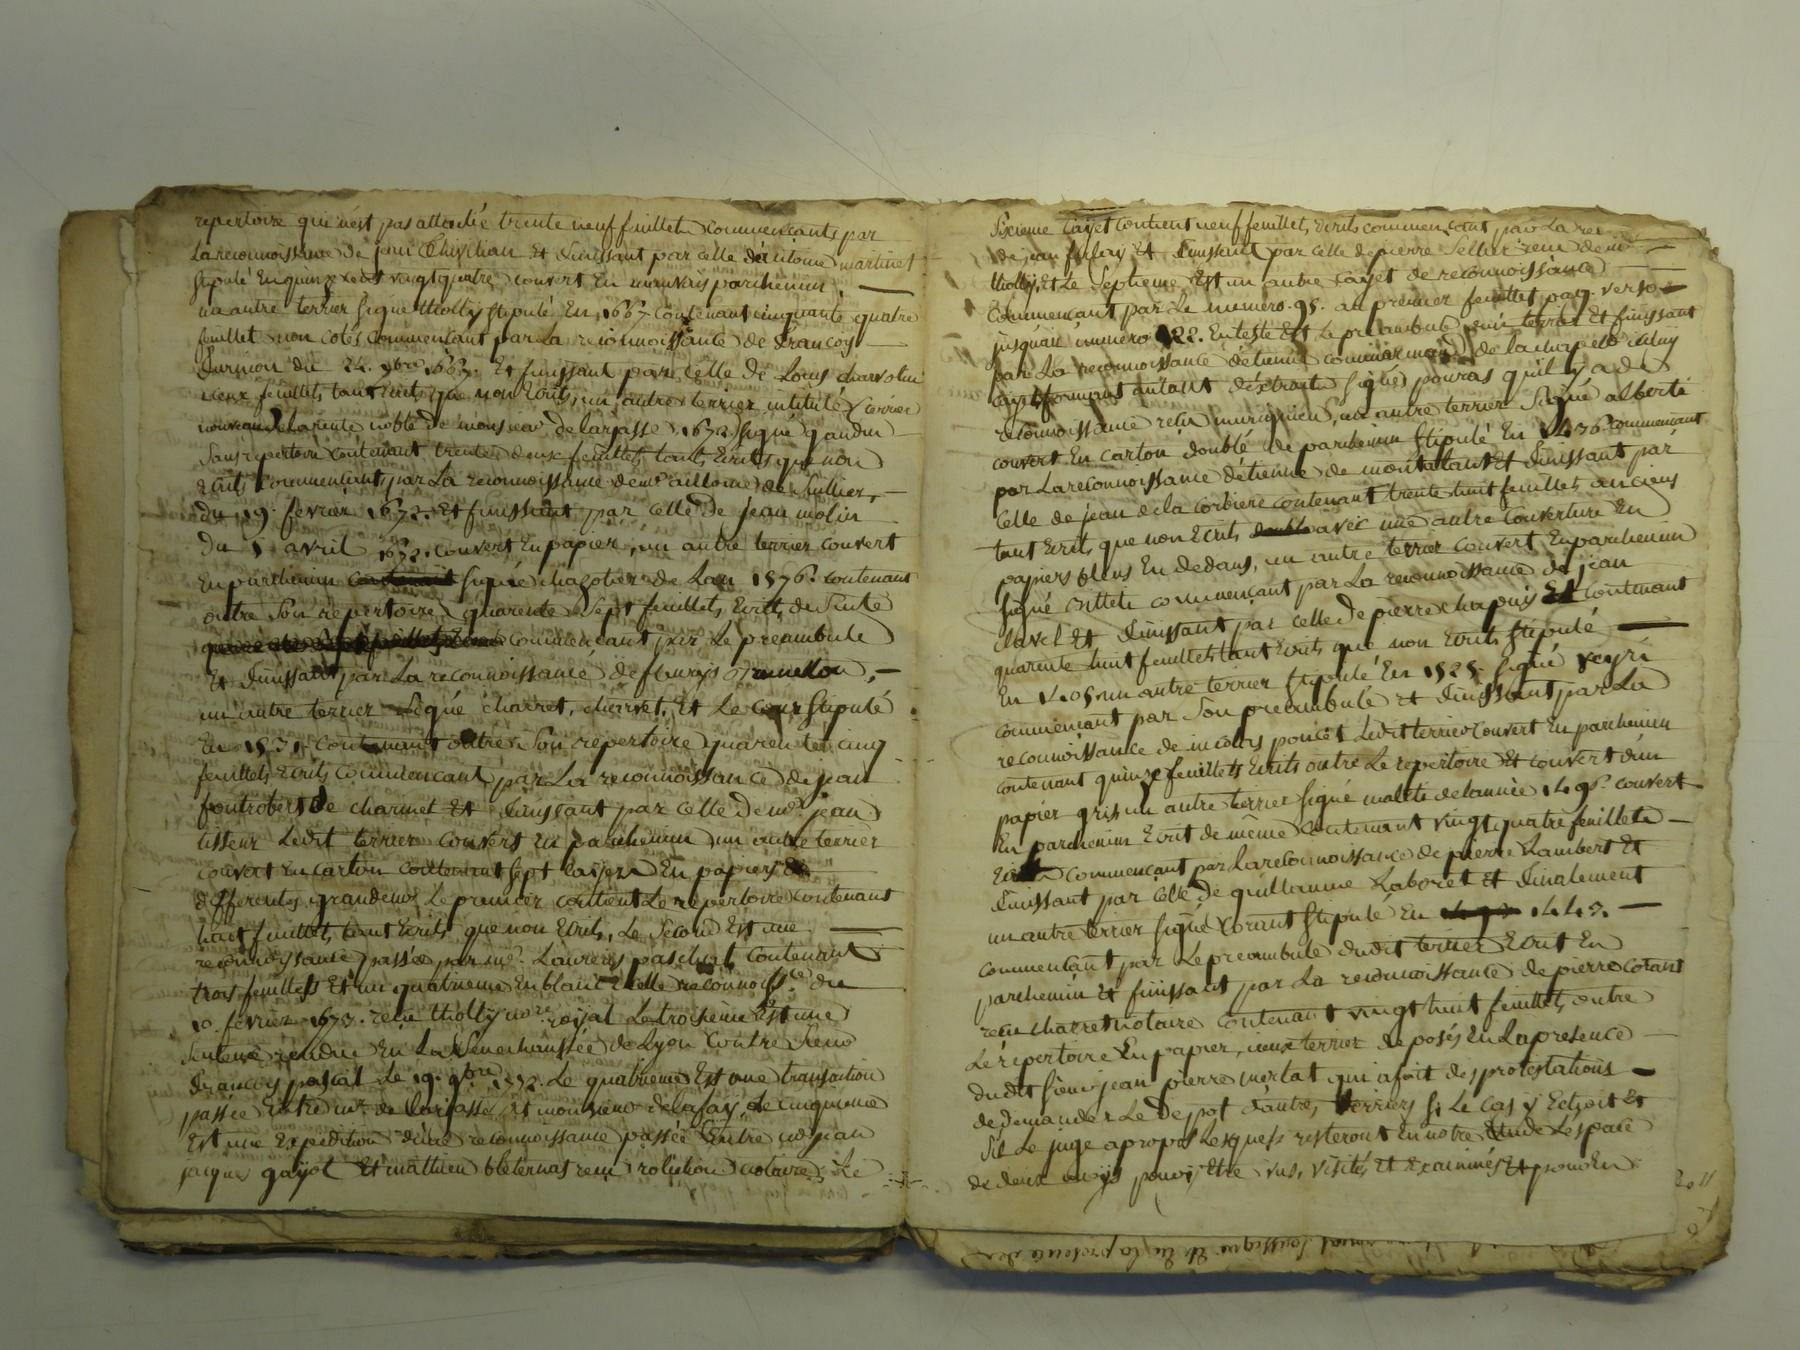 repertoire qui n'est pas attachée trente neuf feuillets commencants par
La reconnoissance de jean Chivilian Et finissant par celle d'antoine martinet
stipulé En quinze cents vingt quatre couvert En mauvais parchemin,
un autre terrier signé tholly stipulé En 1667. Contenant cinquante quatre
feuillet non cotés commencant par La reconnoissance de francoy
du 24. 9bre 1667. Et finissant par Celle de Louis
feuillets tant Ecrits que non Ecrits, un autre terrier intitulé terrier
nouveau de La rente noble de monsieur de larjasse 1672 signé gaudin
Sans repertoire Contenant trente deux feuillets tants Ecrits que non
Ecrits Commencants par La reconnoissance de
du 19. fevrier 1672. Et finissant par Celle de jean molin
Du 5 avril 1672. couvert En papier, un autre terrier couvert
En parchemin signé chazotier de Lan 1576. contenant
outre Son repertoire quarente Sept feuillets Ecrits de Suite
commencant par Le preambule
Et finissant par La reconnoissance de fleurys
un autre terrier Signé charret, charvet, Et Le Cour Stipulé
En 1531 contenant outre Son repertoire quarente cinq
feuillets Ecrits Commencant par La reconnoissance de jean
fontrobert de charmet Et finissant par celle de mr. jean
tisseur Ledit terrier Couvert En parchemin un autre terrier
couvert En carton contenant Sept Cayers En papiers de
differentes grandeurs Le premier contient Le repertoire contenant
huit feuillets tant Ecrits que non Ecrits, Le Second Est une
reconnoissance passée par mr. Laurens paschal Contenant
trois feuillets Et un quatrieme En blanc Celle reconnoissce. du
10. fevrier 1673. recu tholly nore royal Le troisieme Est une
Sentence rendue En La Senechaussée de Lyon Contre Sieur
francois pascal Le 19. 9bre 1572. Le quatrieme Est une transaction
passée Entre mr. de larjasse et monsieur delafay, Le Cinquieme
Est une Expedition d'une reconnoissance passée Entre jean
jacques gayot Et mathieu bleternas recu notaire, Le
Sixieme Cayet Contient neuf feuillets Ecrits commencant par La rec
de jean fulay Et finissant par celle de pierre Sellier recu de mr.
tholly, Et Le Septieme Est un autre Cayet de reconnoissance
Commencant par Le numero 95. au premier feuillet pag. verso
jusqu'au numero 122. En teste Est Le preambule terrier Et finissant
par La reconnoissance d'etienne de la chapelle iceluy
Cayet formant autant d'extraits Signés pouras qu'il y a de
reconnoissance recu murignieu, un autre terrier Signé alberti
couvert En carton doublé de parchemin Stipulé En 1436. commencant
par La reconnoissance d'etienne de montalant Et finissant par
Celle de jean de la corbiere contenant trente huit feuillets anciens
tant Ecrits que non Ecrits avec une autre Couverture En
papiers bleus En dedans, un autre terrier Couvert En parchemin
Signé billete commencant par La reconnoissance de jean
clavel Et finissant par celle de pierre chapuis Et contenant
quarente huit feuillets tant Ecrits que non Ecrits Stipulé
En 1405 un autre terrier Stipulé En 1525. Signé veyri
commencant par Son preambule Et finissant par La
reconnoissance de nicolas poncet Ledit terrier Couvert En parchemin
contenant quinze feuillets Ecrits outre Le repertoire Et couvert d'un
papier gris un autre terrier Signé malete de lannée 1496. couvert
En parchemin Ecrit de même Contenant vingt quatre feuillets
commencant par La reconnoissance de pierre Lambert Et
finissant par Celle de guillaume Laboret Et finalement
un autre terrier Signé Corant Stipulé En 1443.
commencant par Le preambule dudit terrier Ecrit En
parchemin Et finissant par La reconnoissance de pierre Corant
recu charret notaire Contenant vingt huit feuillets outre
Le repertoire En papier, iceux terrier deposés En La presence
dudit Sieur jean pierre merlat qui a fait des protestations
de demander Le Depot d'autres terriers Si Le Cas y Echoit Et
S'il Le juge apropos Lesquels resteront En notre Etude L'espace
de deux moys pour y Etre vus, visités, Et Examinés Et prendEn
Soussigné Et En la presence des